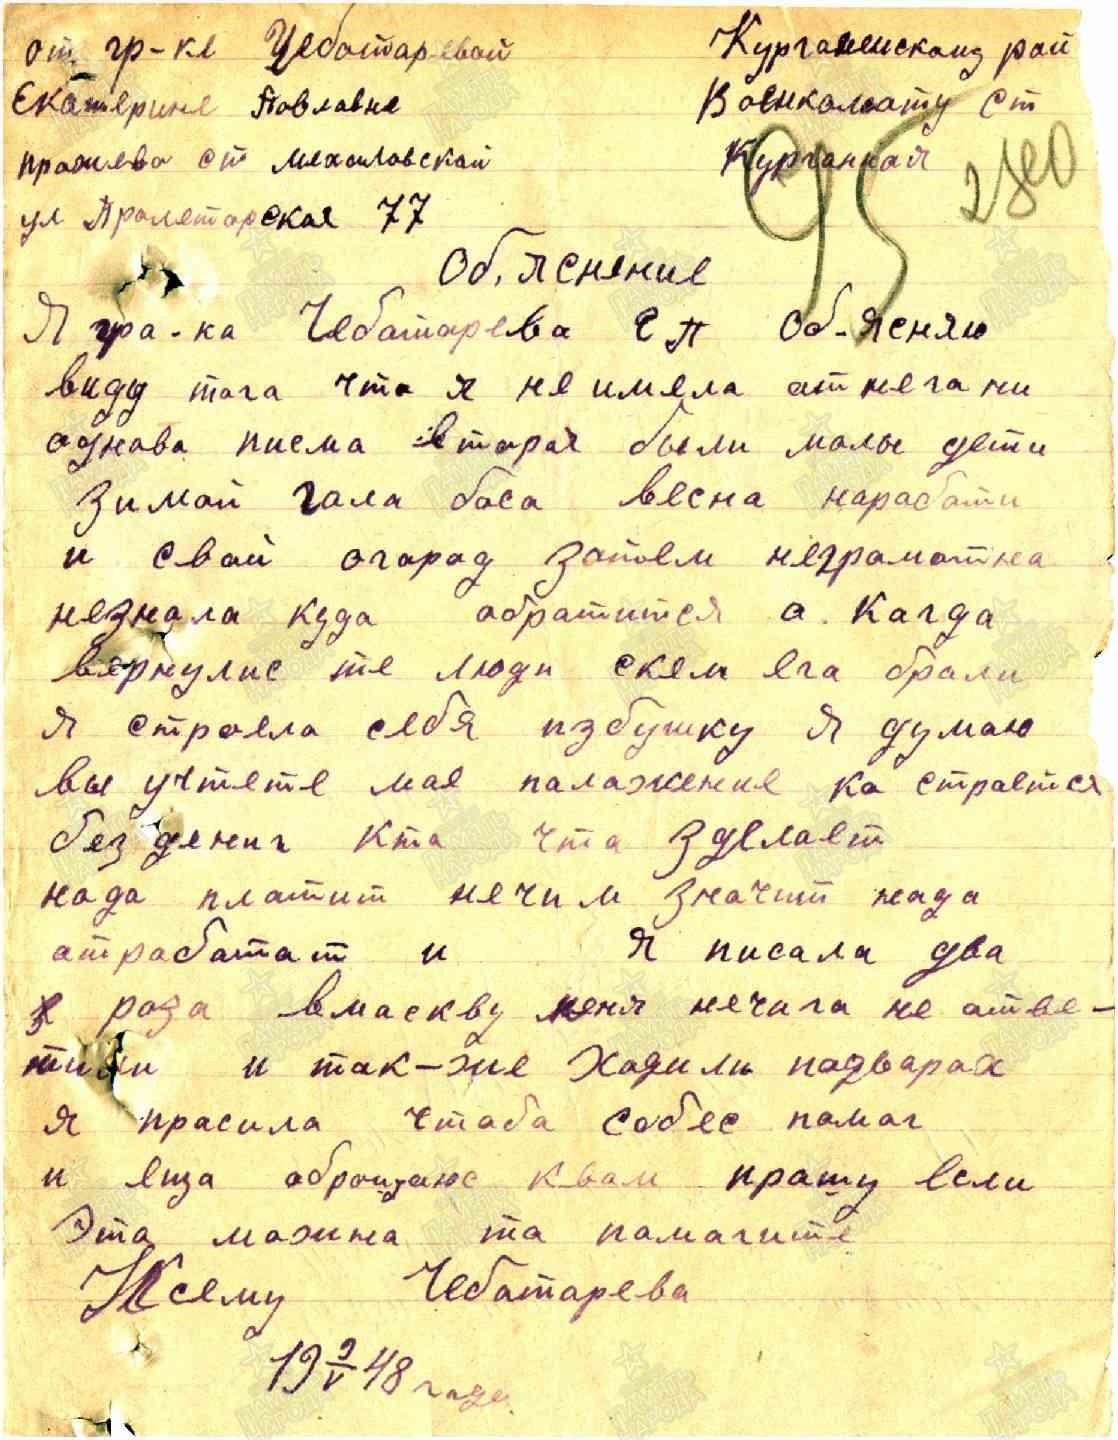 от гр-ке Чеботаревой
Екатерине Павловне
прожева ст михаиловской
ул Пролетарская 77
Курганенскому рай
Военкомату ст
Курганная
95
2880
Об,яснение
Я гра-ка Чеботарева Е П Об-ясняю
виду таго что я не имела атнего ни
однова писма вторая были малы дети
зимой гола боса весна наработи
и свой огород затем неграмотна
незнала куда обратится а Кагда
вернулис те люди скем его брали
я строела себя избушку Я думаю
вы учтете мае палажение ка строется
без дениг Кто что зделает
надо платит нечим значит надо
атработат и Я писала два
раза вмаскву меня нечиго не отве-
тили и так-же ходили падварах
я прасила чтоба собес памаг
и еща обращаюс квам прашу если
Эта можна та памагите
Ксему Чеботарева
19 9/V 48 года